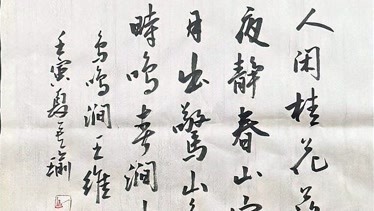 人闲桂花落
夜静春山空
月出驚山鸟
時鸣春涧中
鸟鸣涧王维
壬寅夏